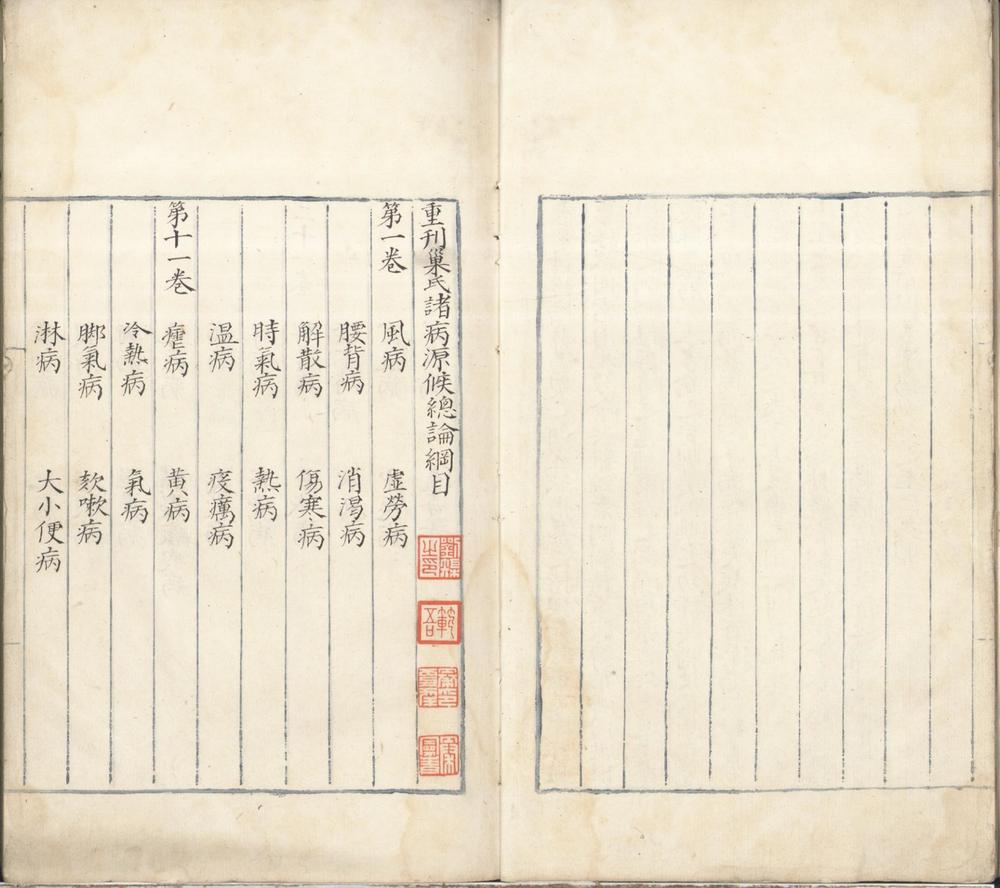 重刊巢氏諸病源候總論綱目
第一卷　風病　虛勞病
腰背病　消渴病
解散病　傷寒病
時氣病　熱病
溫病　疫癘病
第十一卷　瘧病　黃病
冷熱病　氣病
脚氣病　欬嗽病
淋病　大小便病